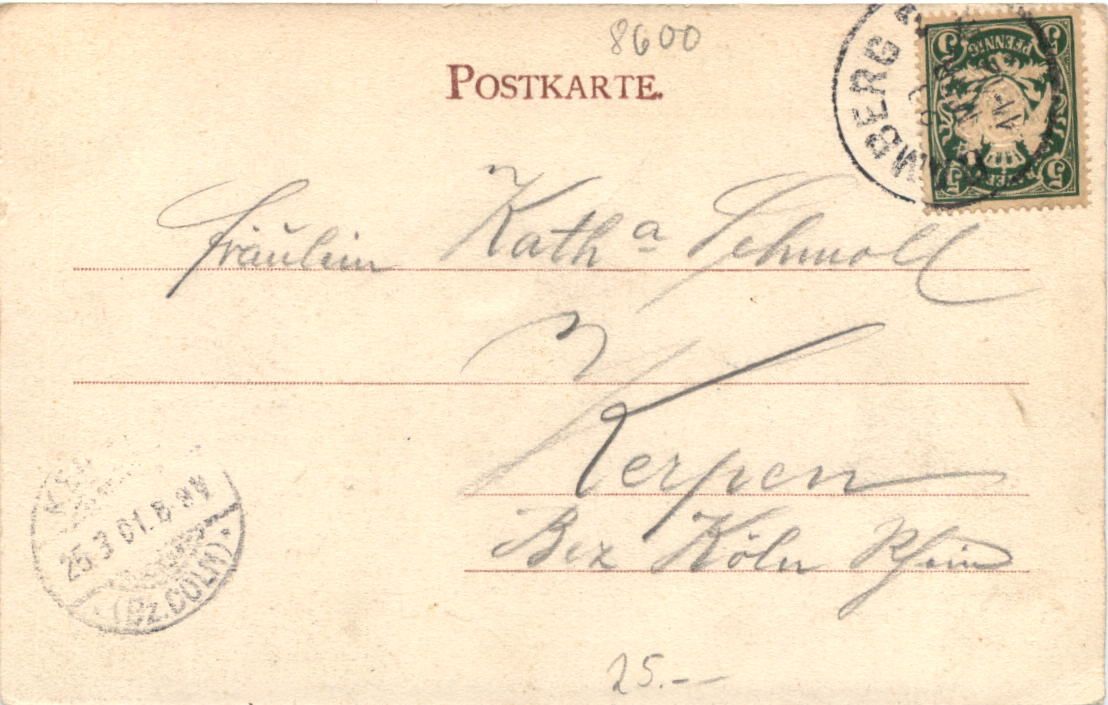 8600
POSTKARTE.
PFENNIG
5 5
Fräulein Kath a Schmoll
Kerpen
Bez Köln Rhein
25.3.01.
(Bz. CÖLN)
25.—